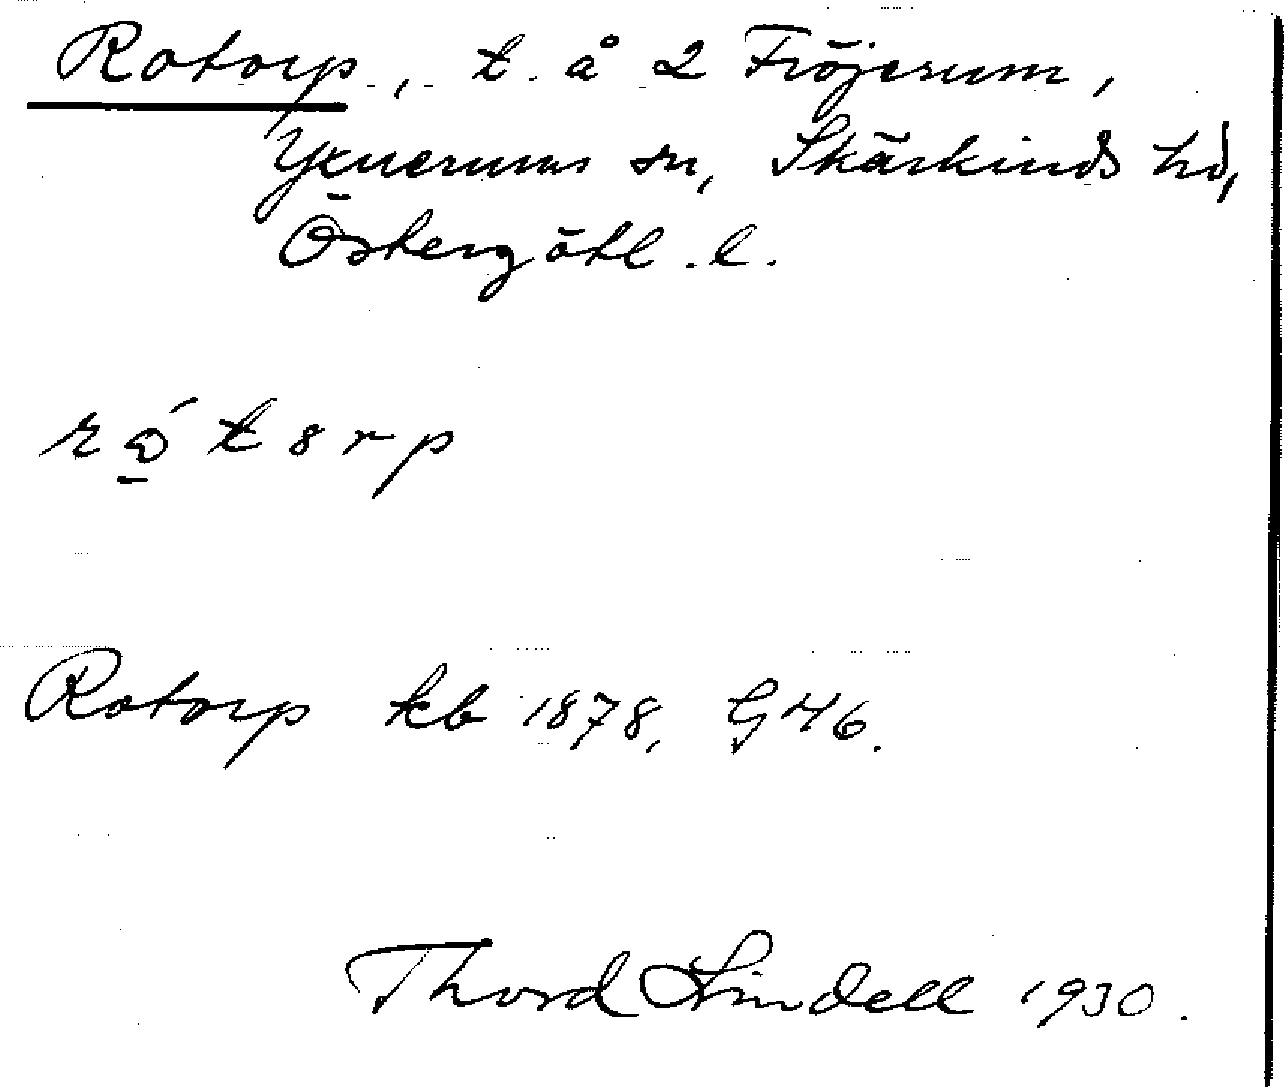 Rotorp, t. å 2 Fröjerum,
Yxnerums sn, Skärkinds hd,
Östergötl. l.
Rotorp kb 1878, G 46.
Thord Lindell 1930.